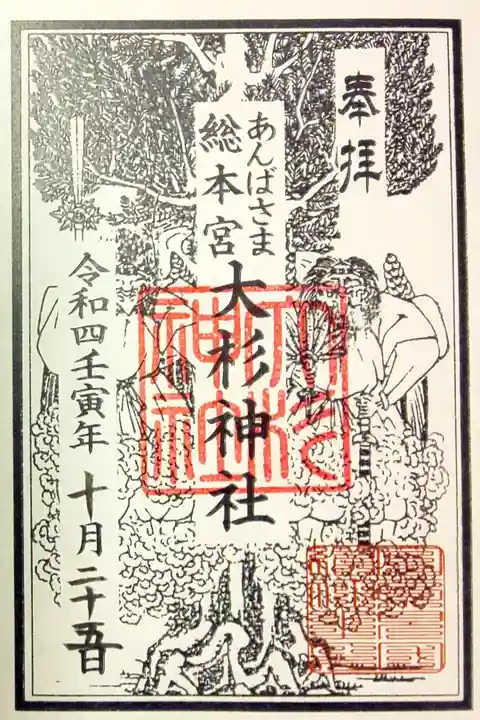 奉拝
あんばさま
総本宮
大杉神社
令和四壬寅年 十月二十五日